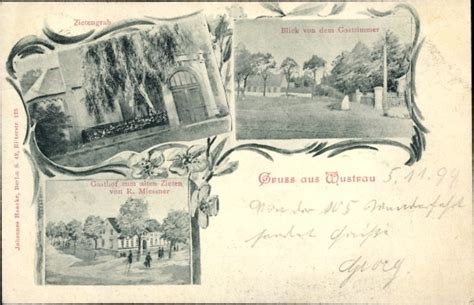 Zietengrab
Blick von dem Gastzimmer
Gasthof zum alten Zieten
von R. Miessner
Gruss aus Wustrau
5. 11. 99
Von der
sendet Grüße
Georg
Johannes Haacke, Berlin S. 42, Ritterstr.